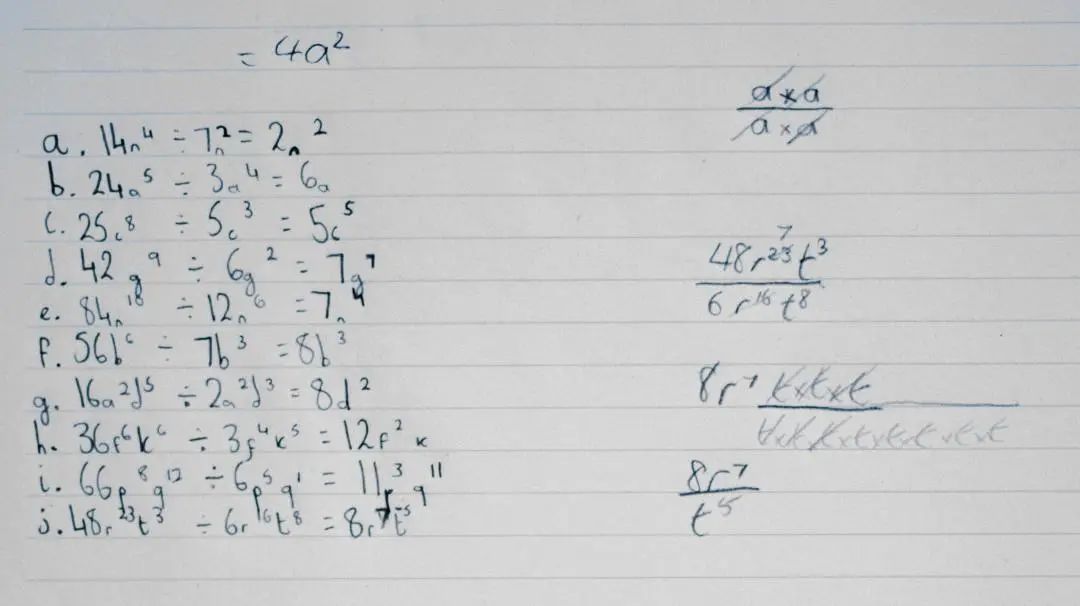 = 4a²
a × a
a × a
a. 14n⁴ ÷ 7n² = 2n²
b. 24a⁵ ÷ 3a⁴ = 6a
c. 25c⁸ ÷ 5c³ = 5c⁵
d. 42g⁹ ÷ 6g² = 7g⁷
e. 84n¹⁰ ÷ 12n⁶ = 7n⁴
f. 56b⁶ ÷ 7b³ = 8b³
g. 16a²d⁵ ÷ 2a²d³ = 8d²
h. 36f⁶k⁶ ÷ 3f⁴k⁵ = 12f²k
i. 66p⁸q¹² ÷ 6p⁵q¹ = 11p³q¹¹
j. 48r²³t³ ÷ 6r¹⁶t⁸ = 8r⁷t⁻⁵
7
48r²³t³
6r¹⁶t⁸
8r⁷ t×t×t
t×t×t×t×t×t×t×t
8r⁷
t⁵